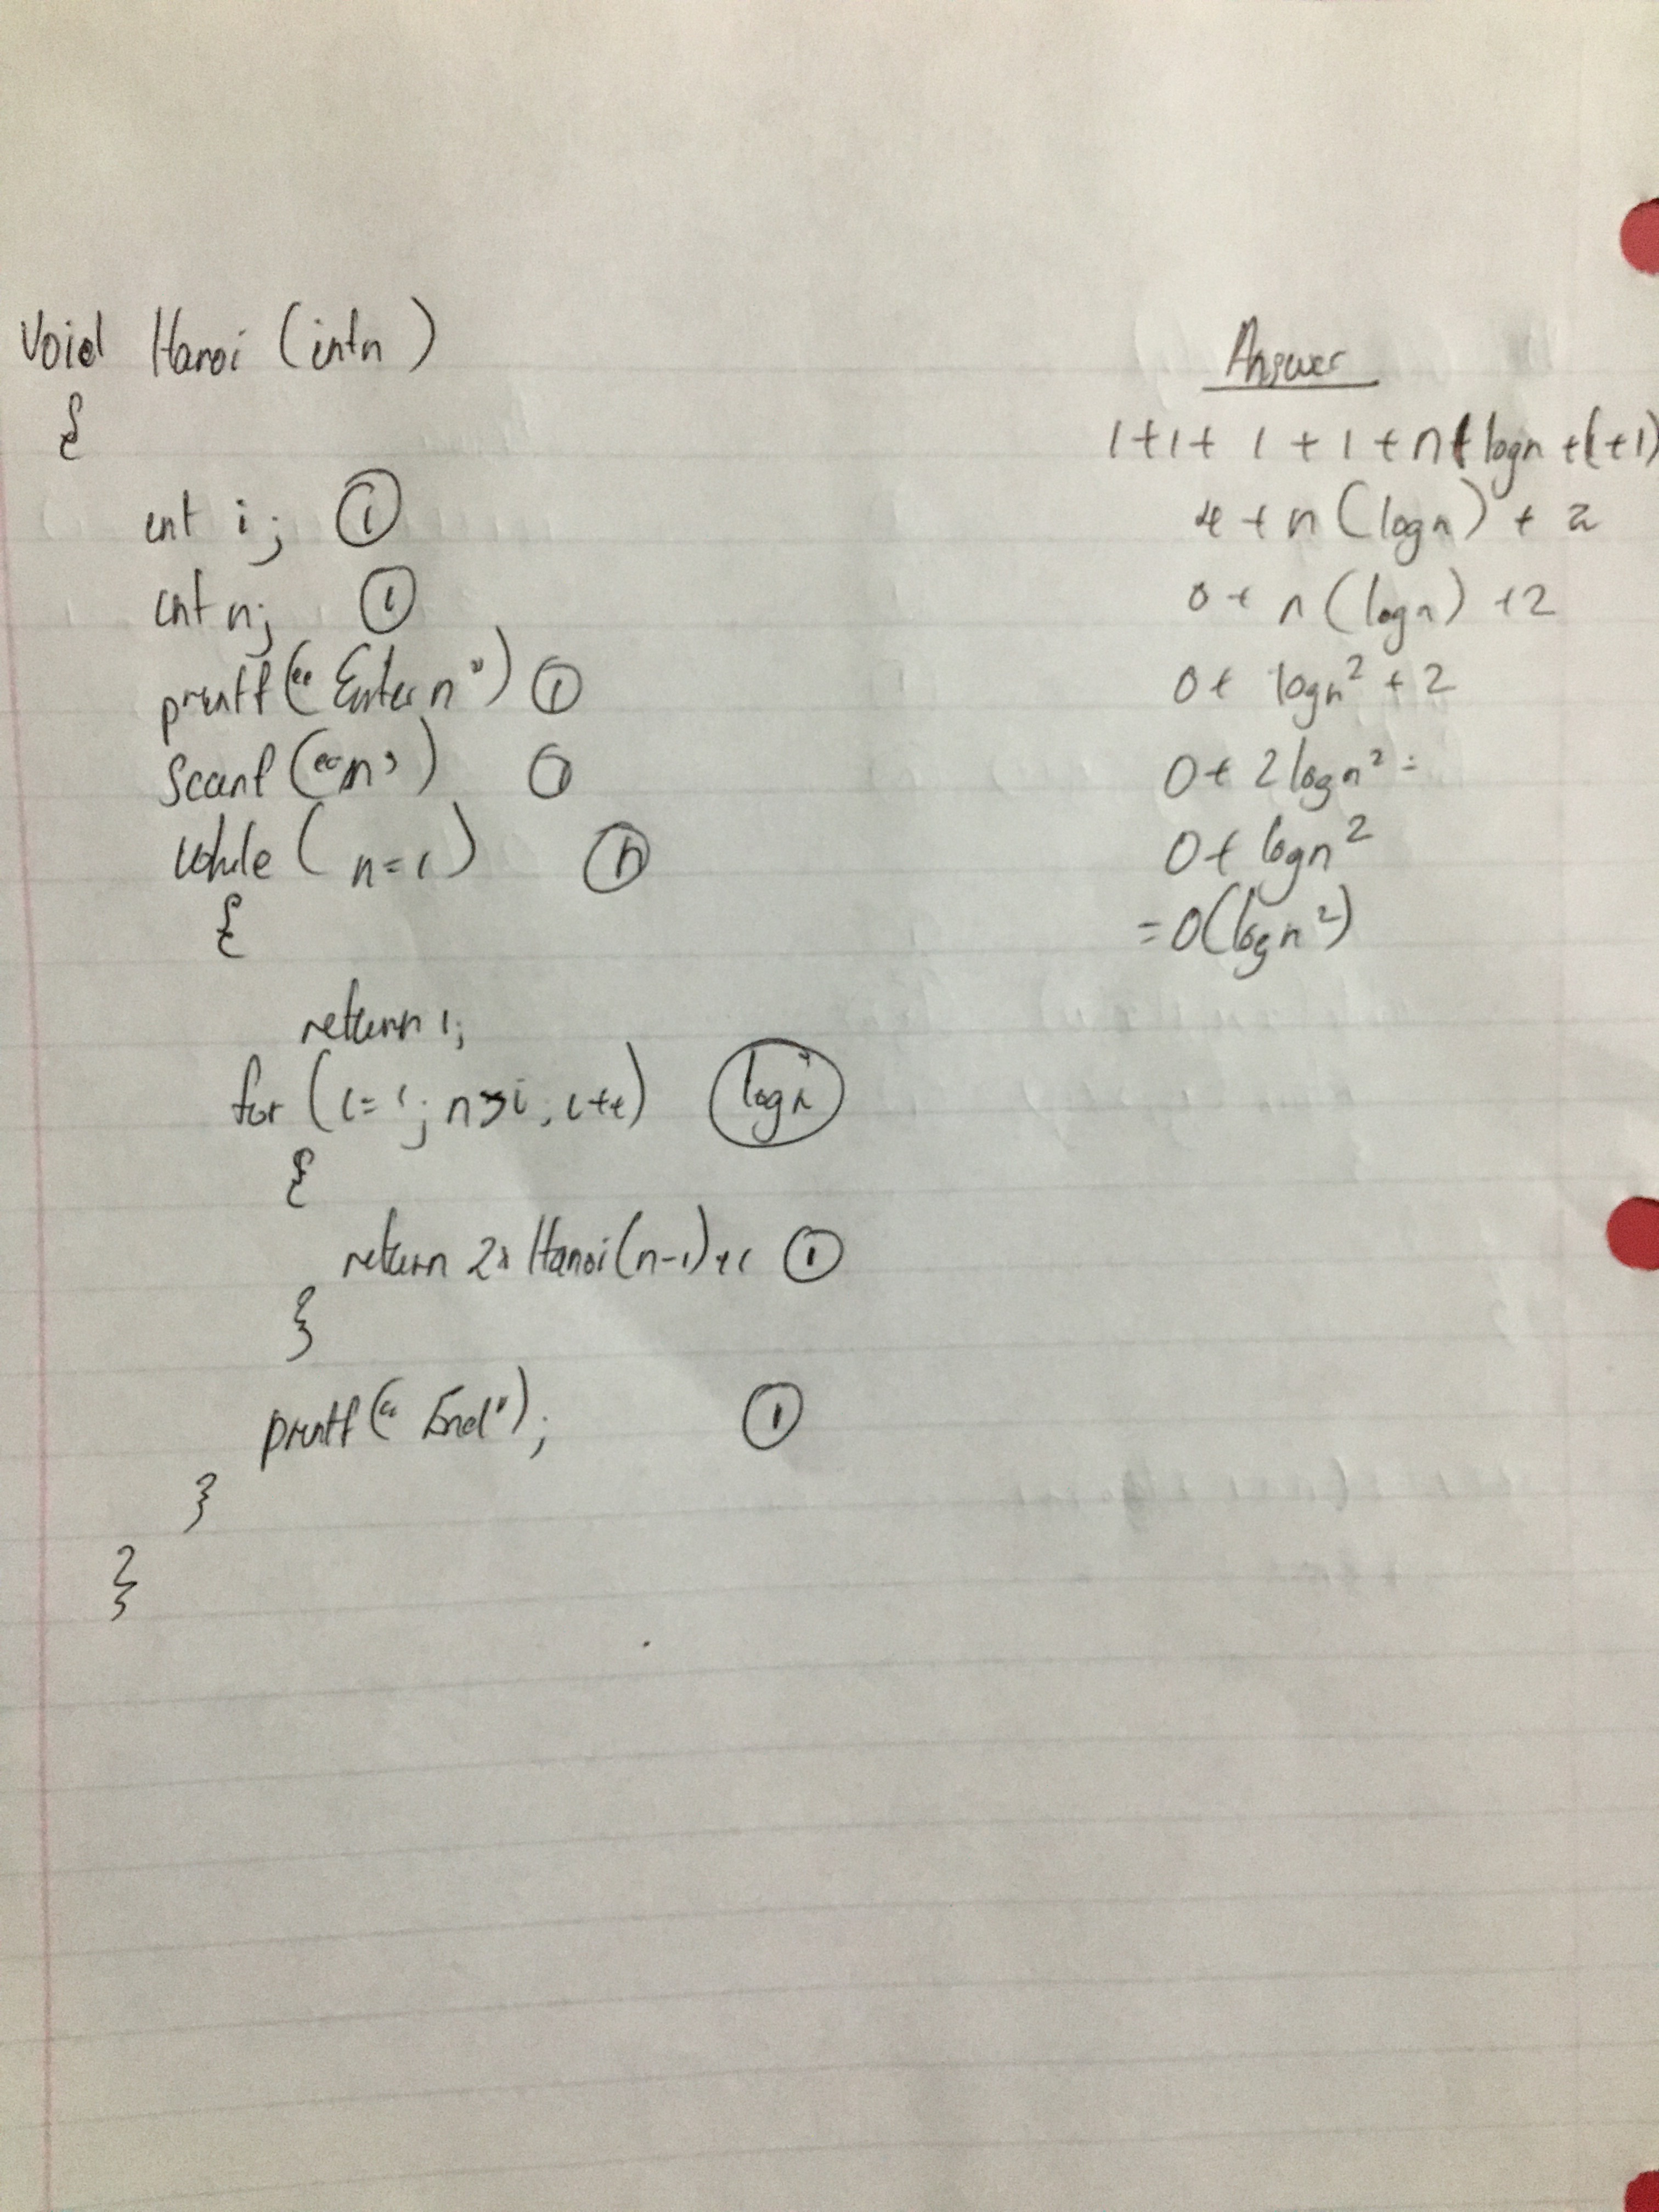 Void Hanoi (int n)
{
int i; 1
int n; 1
printf("Enter n") 1
Scanf("n") 1
while (n=1) n
{
return 1;
for (i=1; n>i; i++) log n
{
return 2x Hanoi(n-1)+1 1
}
printf("End"); 1
}
}
Answer
1+1+ 1 + 1 + n + logn +(1+1)
4 + n (logn) + 2
0 + n (logn) +2
0 + logn² + 2
0 + 2 logn² =
0 + logn²
= O(logn²)